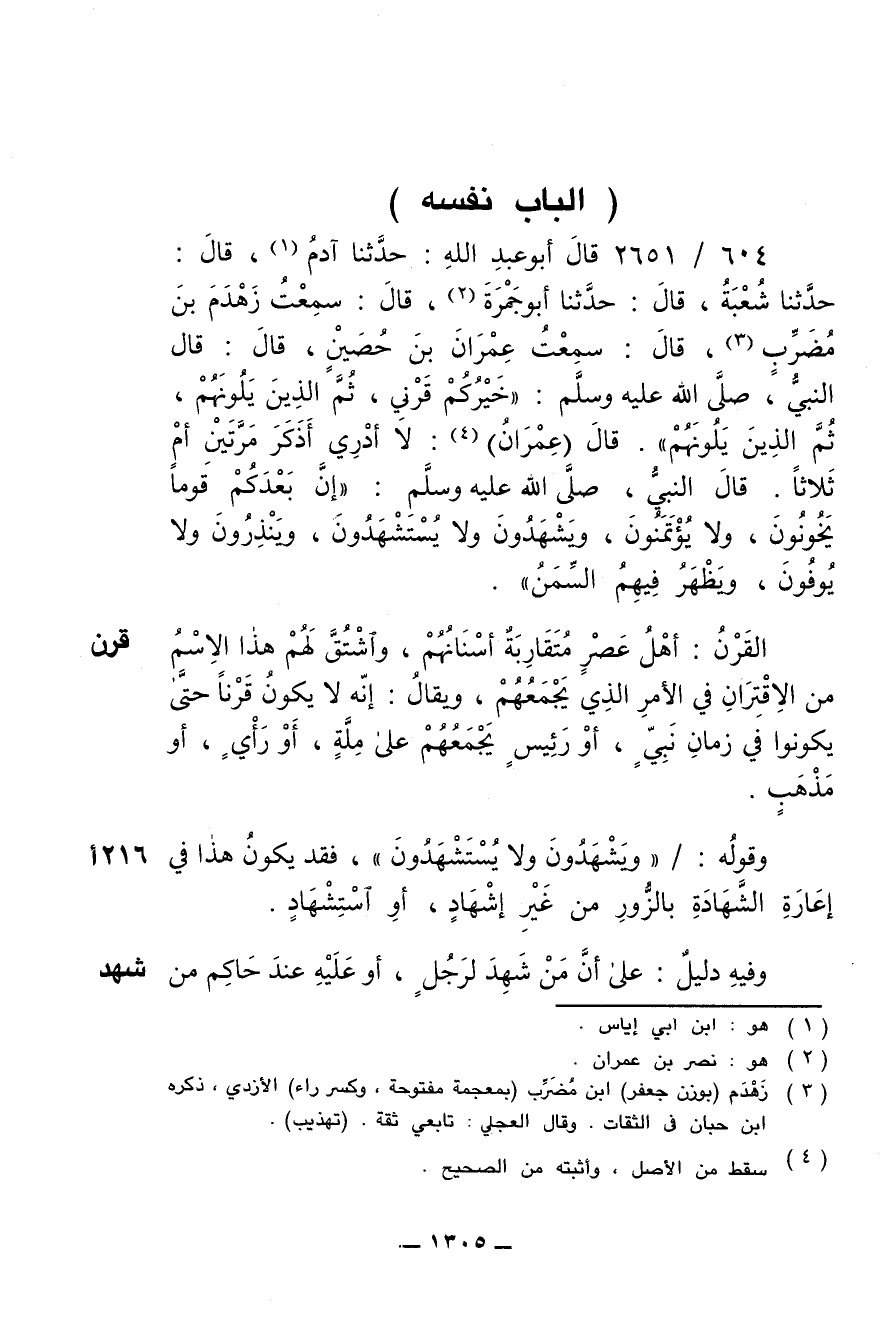 ( الباب نفسه )
٦٠٤ / ٢٦٥١ قالَ أبوعبدِ اللهِ : حدَّثنا آدمُ (١) ، قالَ :
حدَّثنا شُعْبَةُ ، قالَ : حدَّثنا أبوجَمْرَةَ (٢) ، قالَ : سمِعْتُ زَهْدَمَ بنَ
مُضَرِّبٍ (٣) ، قالَ : سمِعْتُ عِمْرَانَ بنَ حُصَيْنٍ ، قالَ : قال
النبيُّ ، صلَّى الله عليه وسلَّم : «خَيْرُكُمْ قَرْني ، ثُمَّ الذِينَ يَلُونَهُمْ ،
ثُمَّ الذِينَ يَلُونَهُمْ» . قالَ (عِمْرَانُ) (٤) : لا أدْرِي أَذَكَرَ مَرَّتَيْنِ أمْ
ثَلاثاً . قالَ النبيُّ ، صلَّى الله عليه وسلَّم : «إنَّ بَعْدَكُمْ قَوماً
يَخُونُونَ ، ولا يُؤْتَمَنُونَ ، ويَشْهَدُونَ ولا يُسْتَشْهَدُونَ ، ويَنْذِرُونَ ولا
يُوفُونَ ، ويَظْهَرُ فِيهِمُ السِّمَنُ» .
القَرْنُ : أهْلُ عَصْرٍ مُتَقَارِبَةٌ أسْنَانُهُمْ ، وٱشْتُقَّ لَهُمْ هذا الاِسْمُ قرن
من الاِقْتِرَانِ في الأمرِ الذِي يَجْمَعُهُمْ ، ويقالُ : إنّه لا يكونُ قَرْناً حتَّى
يكونوا في زمانِ نَبِيٍّ ، أوْ رَئِيسٍ يَجْمَعُهُمْ على مِلَّةٍ ، أَوْ رَأْيٍ ، أو
مَذْهَبٍ .
وقولُه : / « ويَشْهَدُونَ ولا يُسْتَشْهَدُونَ » ، فقد يكونُ هذا في ٢١٦أ
إعَارَةِ الشَّهَادَةِ بالزُّورِ من غَيْرِ إشْهَادٍ ، أوِ ٱسْتِشْهَادٍ .
وفيهِ دليلٌ : على أنَّ مَنْ شَهِدَ لرَجُلٍ ، أو عَلَيْهِ عندَ حَاكِم من شهد
(١) هو : ابن ابي إياس .
(٢) هو : نصر بن عمران .
(٣) زَهْدَم (بوزن جعفر) ابن مُضَرِّب (بمعجمة مفتوحة ، وكسر راء) الأزدي ، ذكره
ابن حبان في الثقات . وقال العجلي : تابعي ثقة . (تهذيب) .
(٤) سقط من الأصل ، وأثبته من الصحيح .
ــ ١٣٠٥ ــ